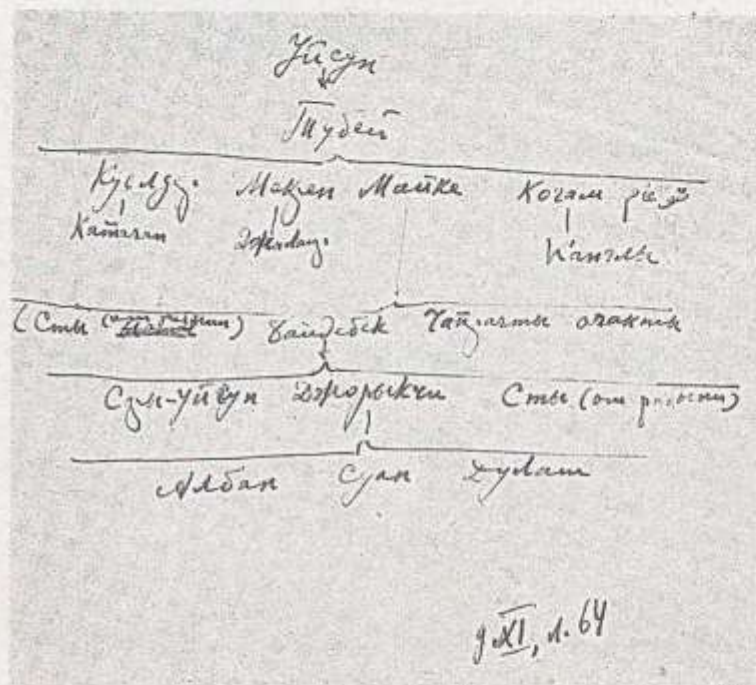 Уйсун
Тубей
Кусляу. Макрен Майке Когам
Катаган Джалаир. Канглы
(Сты Байдебек Чапрашты ошакты
Сары-Уйсун Джорыкчи Сты (от рабыни)
Албан Суан Дулат
д. XI, л. 64